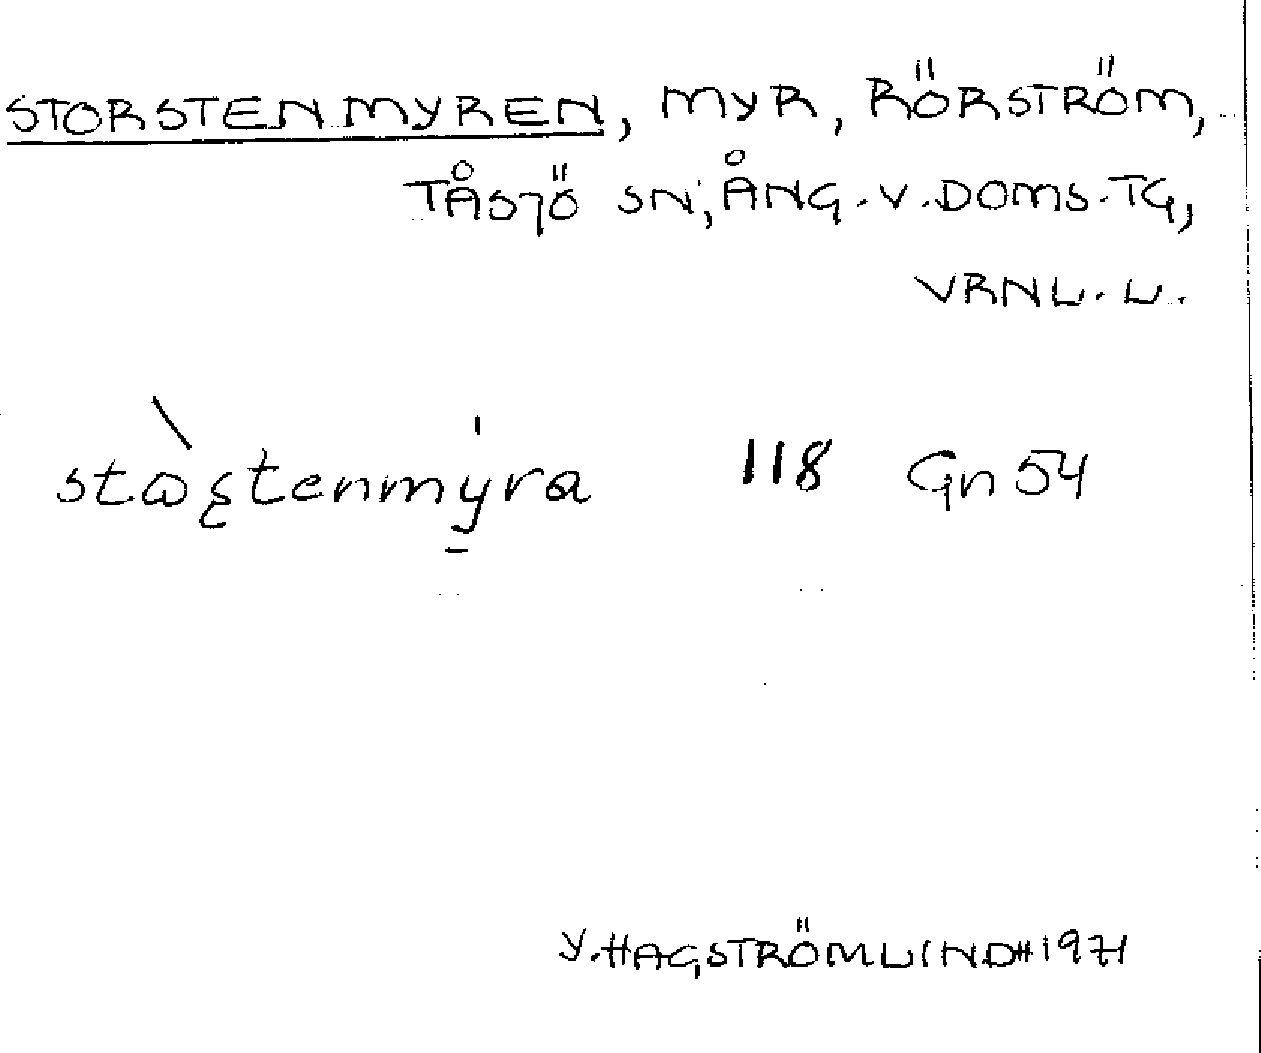 STORSTENMYREN, MYR, RÖRSTRÖM,
TÅSJÖ SN, ÅNG. V. DOMS. TG,
VRNL. L.
stɷ̀ʂtenmy̱̍ra 118 Gn 54
Y. HAGSTRÖM LINDH 1971